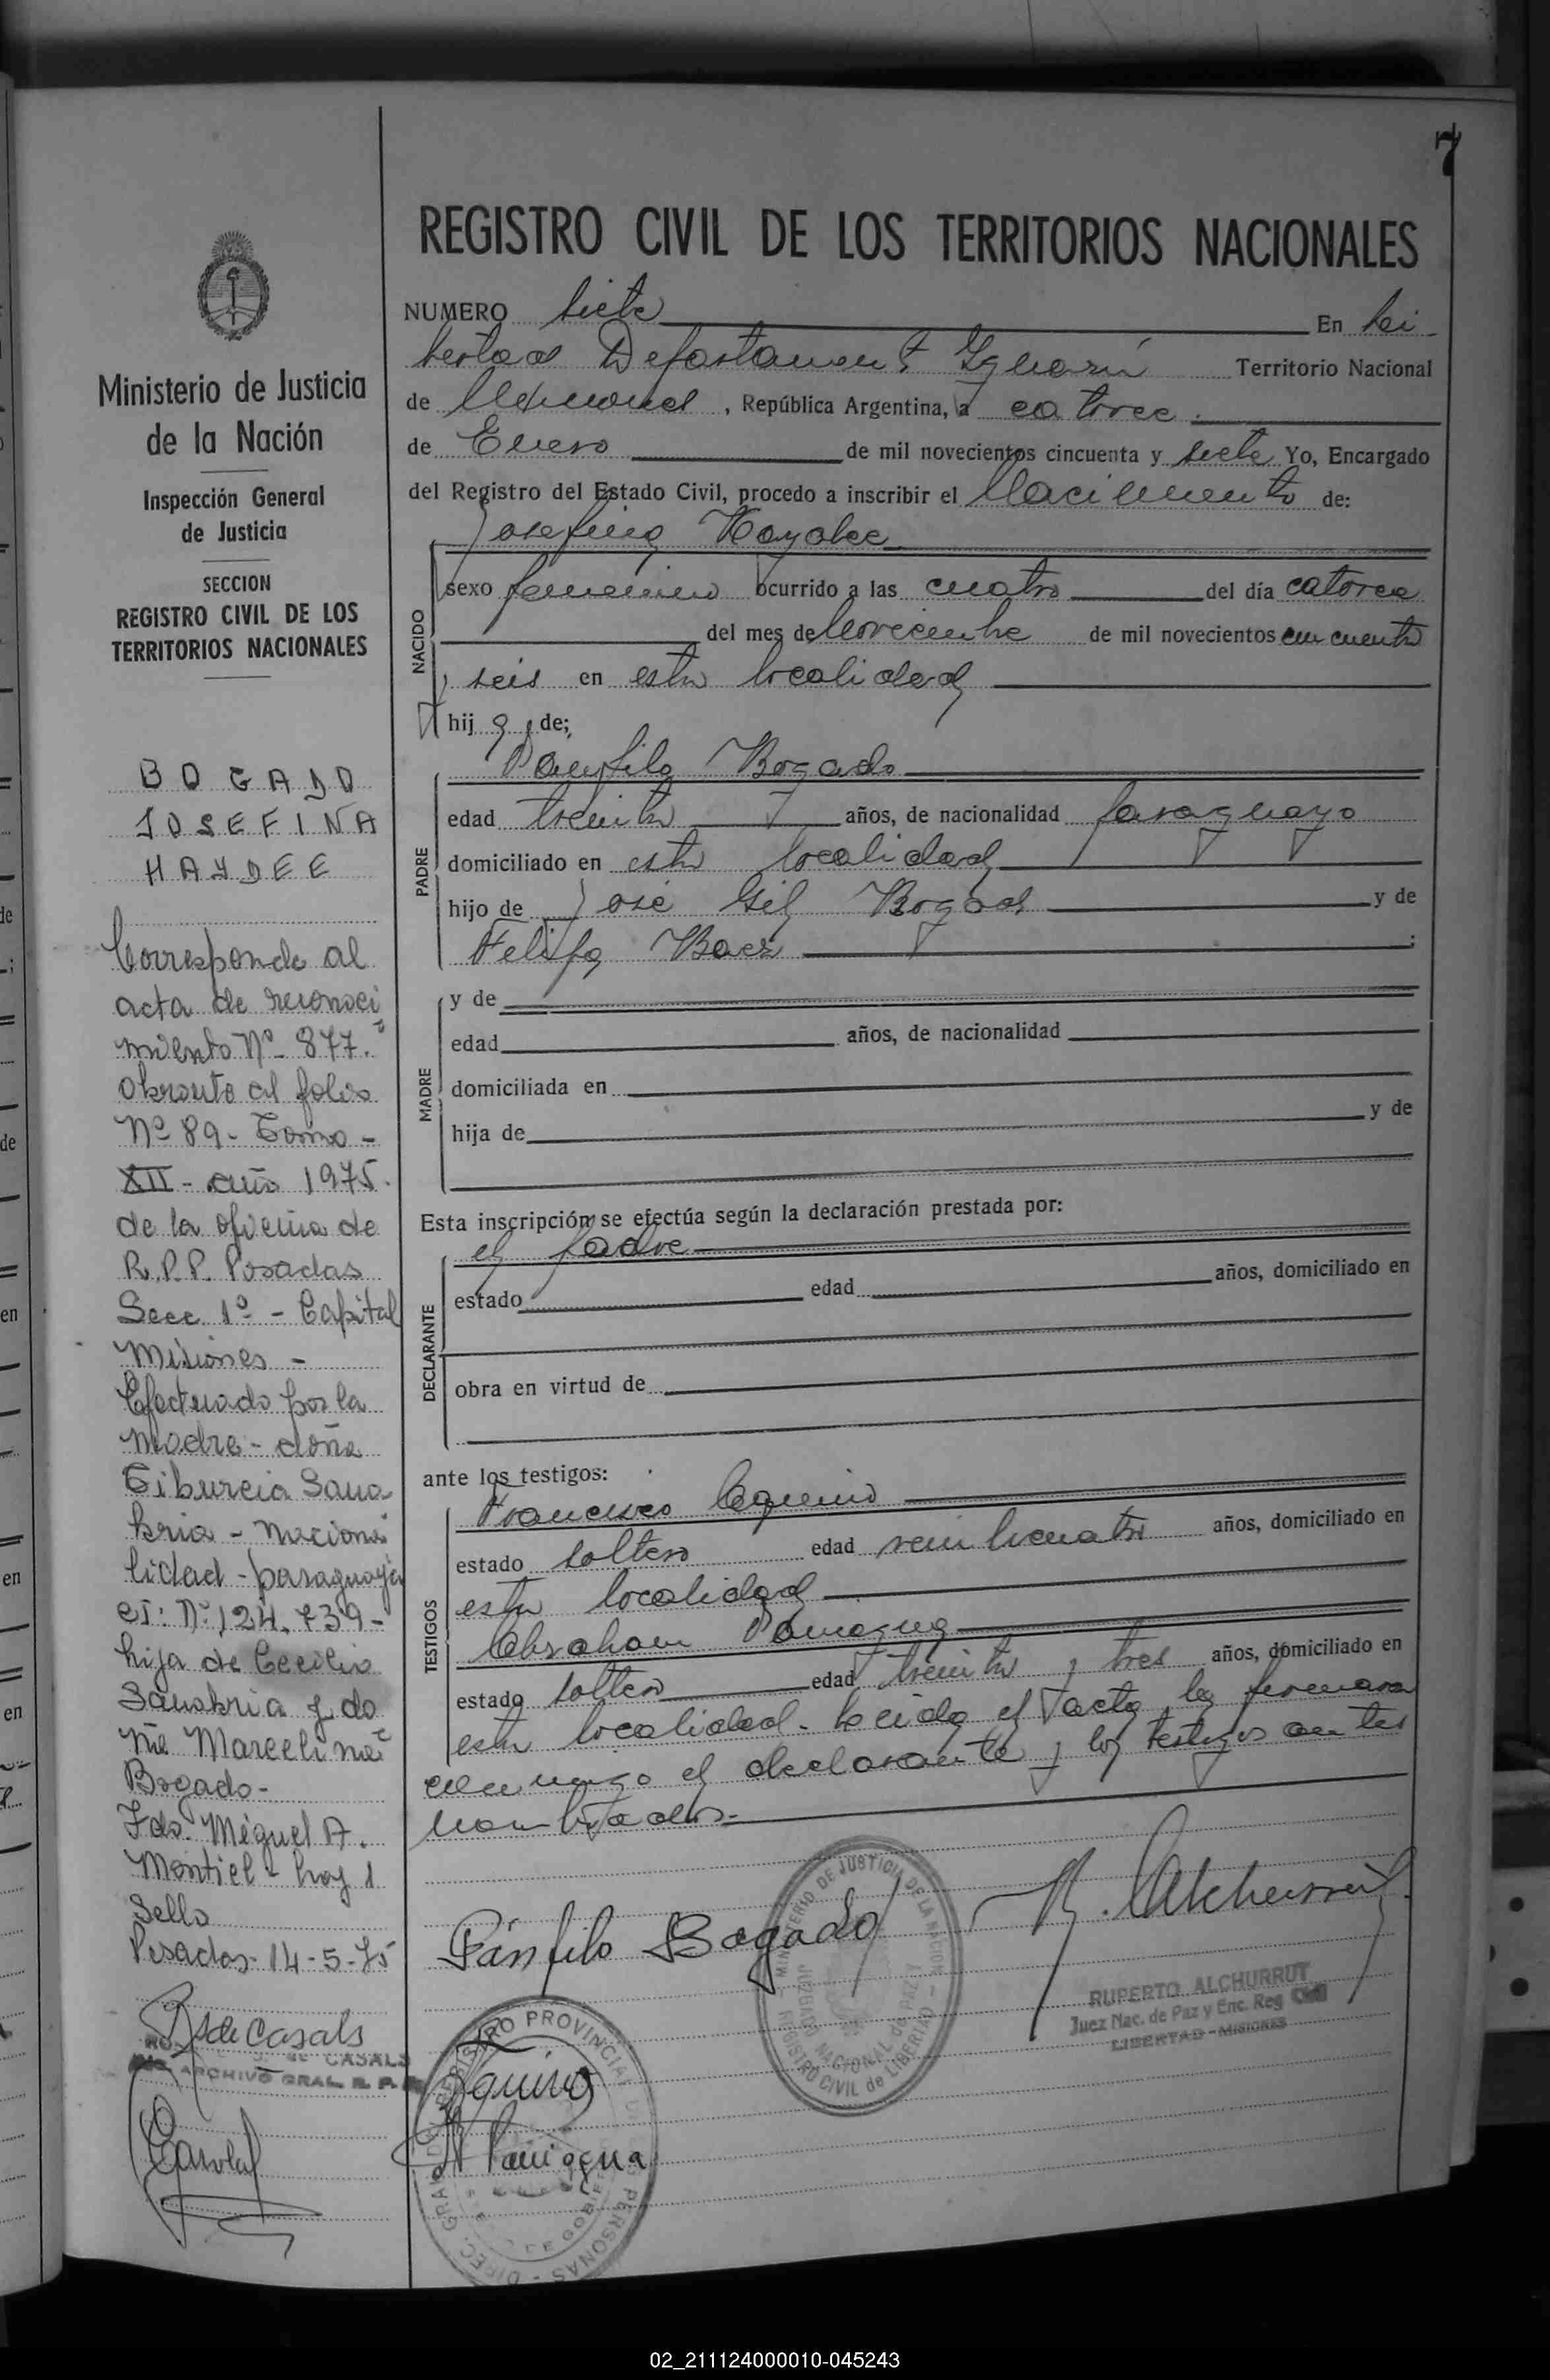 7
REGISTRO CIVIL DE LOS TERRITORIOS NACIONALES
NUMERO siete En Li
bertad Departamento Iguazú Territorio Nacional
de Misiones, República Argentina, a catorce
de Enero de mil novecientos cincuenta y siete Yo, Encargado
del Registro del Estado Civil, procedo a inscribir el Nacimiento de:
Josefina Haydee
NACIDO
sexo femenino ocurrido a las cuatro del día catorce
del mes de Noviembre de mil novecientos cincuenta
y seis en esta localidad
hij a de;
Pánfilo Bogado
PADRE
edad treinta años, de nacionalidad paraguayo
domiciliado en esta localidad
hijo de José Gil Bogado y de
Felipa Baez ;
MADRE
y de
edad años, de nacionalidad
domiciliada en
hija de y de
Esta inscripción se efectúa según la declaración prestada por:
el padre
DECLARANTE
estado edad años, domiciliado en
obra en virtud de
ante los testigos:
TESTIGOS
Francisco Aquino
estado soltero edad veinticuatro años, domiciliado en
esta localidad
Abraham Paniagua
estado soltero edad treinta y tres años, domiciliado en
esta localidad. Leida el acta la firmaron
conmigo el declarante y los testigos antes
nombrados.-
Pánfilo Bogado
R. Alchurrut
MINISTERIO DE JUSTICIA DE LA NACION
JUZGADO NACIONAL de PAZ Y
REGISTRO CIVIL de LIBERTAD
RUPERTO ALCHURRUT
Juez Nac. de Paz y Enc. Reg Civil
LIBERTAD - MISIONES
Aquino
A Paniagua
REGISTRO PROVINCIAL DE PERSONAS - DIREC. GRAL
Ministerio de Justicia
de la Nación
Inspección General
de Justicia
SECCION
REGISTRO CIVIL DE LOS
TERRITORIOS NACIONALES
BOGADO
JOSEFINA
HAYDEE
Corresponde al
acta de reconoci
miento Nº 877.
Obrante al folio
Nº 89- Tomo -
XII - año 1975.
de la oficina de
R.P.P. Posadas
Secc. 1º - Capital
Misiones -
Efectuado por la
Madre - doña
Tiburcia Sana
bria - naciona
lidad - paraguaya
CI: Nº 124.739-
hija de Cecilio
Sanabria y do
ña Marcelina
Bogado-
Fdo. Miguel A.
Montiel - hay 1
Sello
Posadas- 14-5-75
R de Casals
DE CASALS
ARCHIVO GRAL R. P. P.
02_211124000010-045243